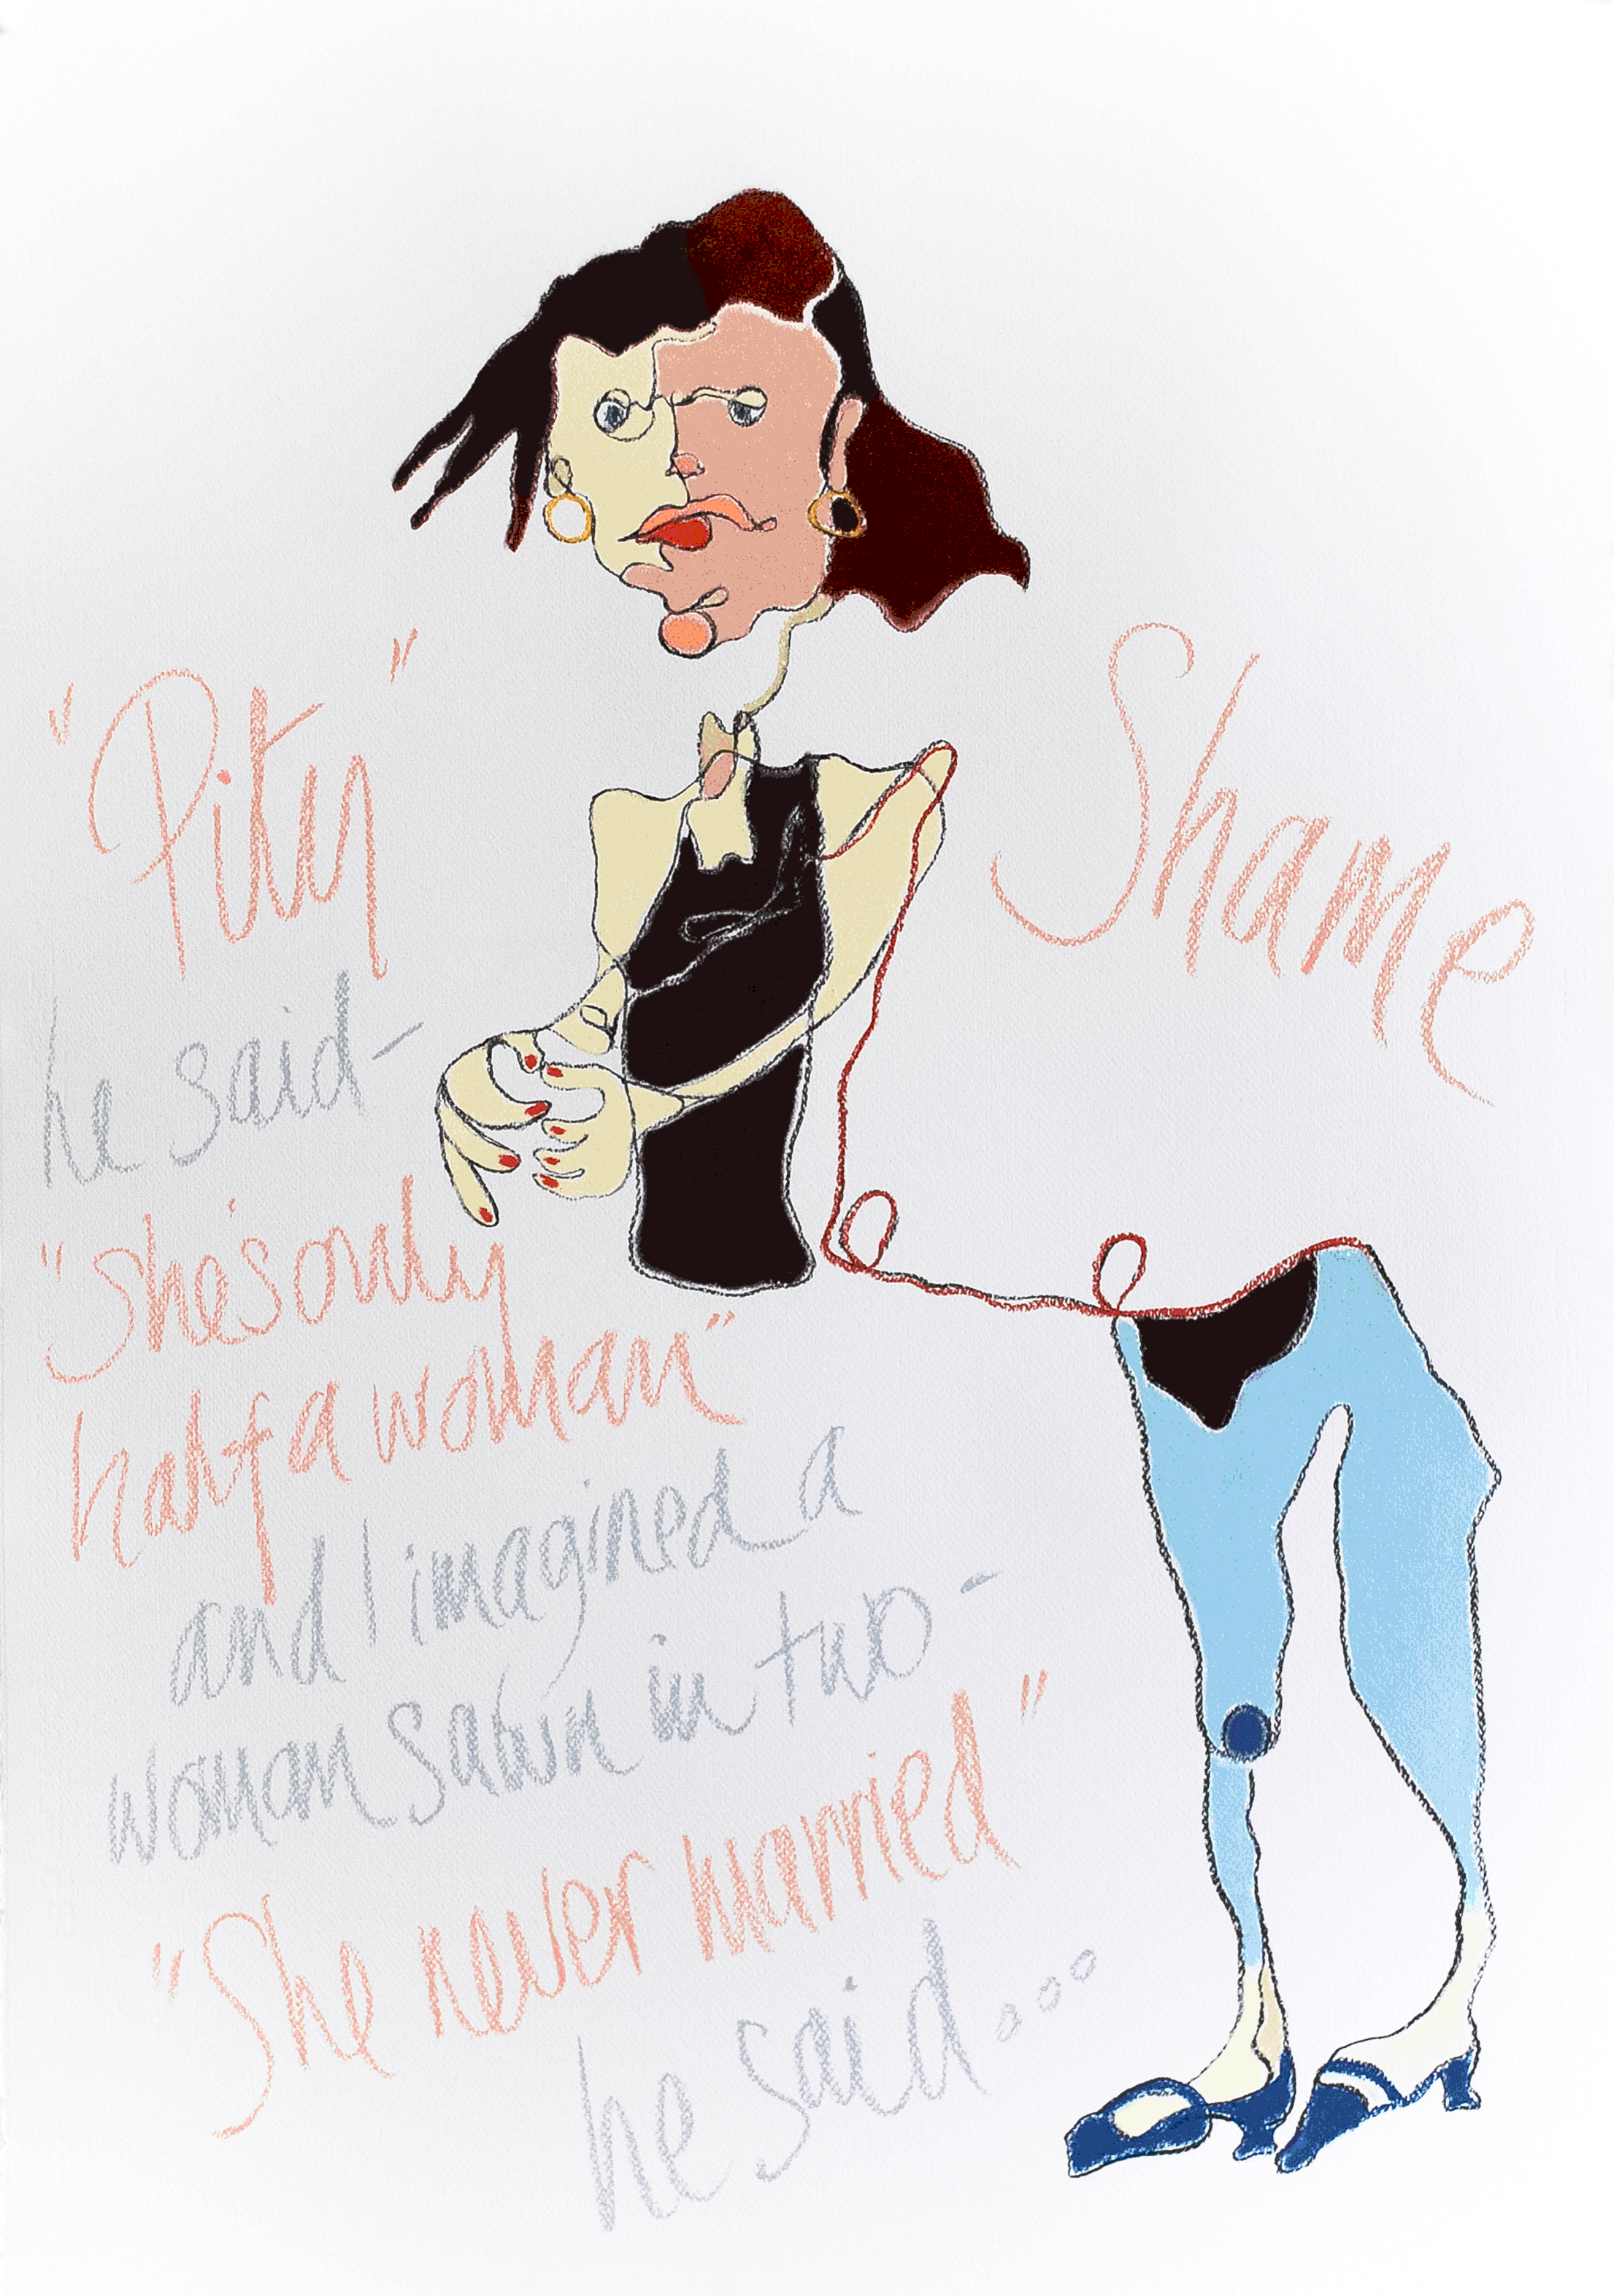 "Pity"
Shame
he said-
"she's only
half a woman"
and I imagined a
woman sawn in two-
"She never married"
he said...